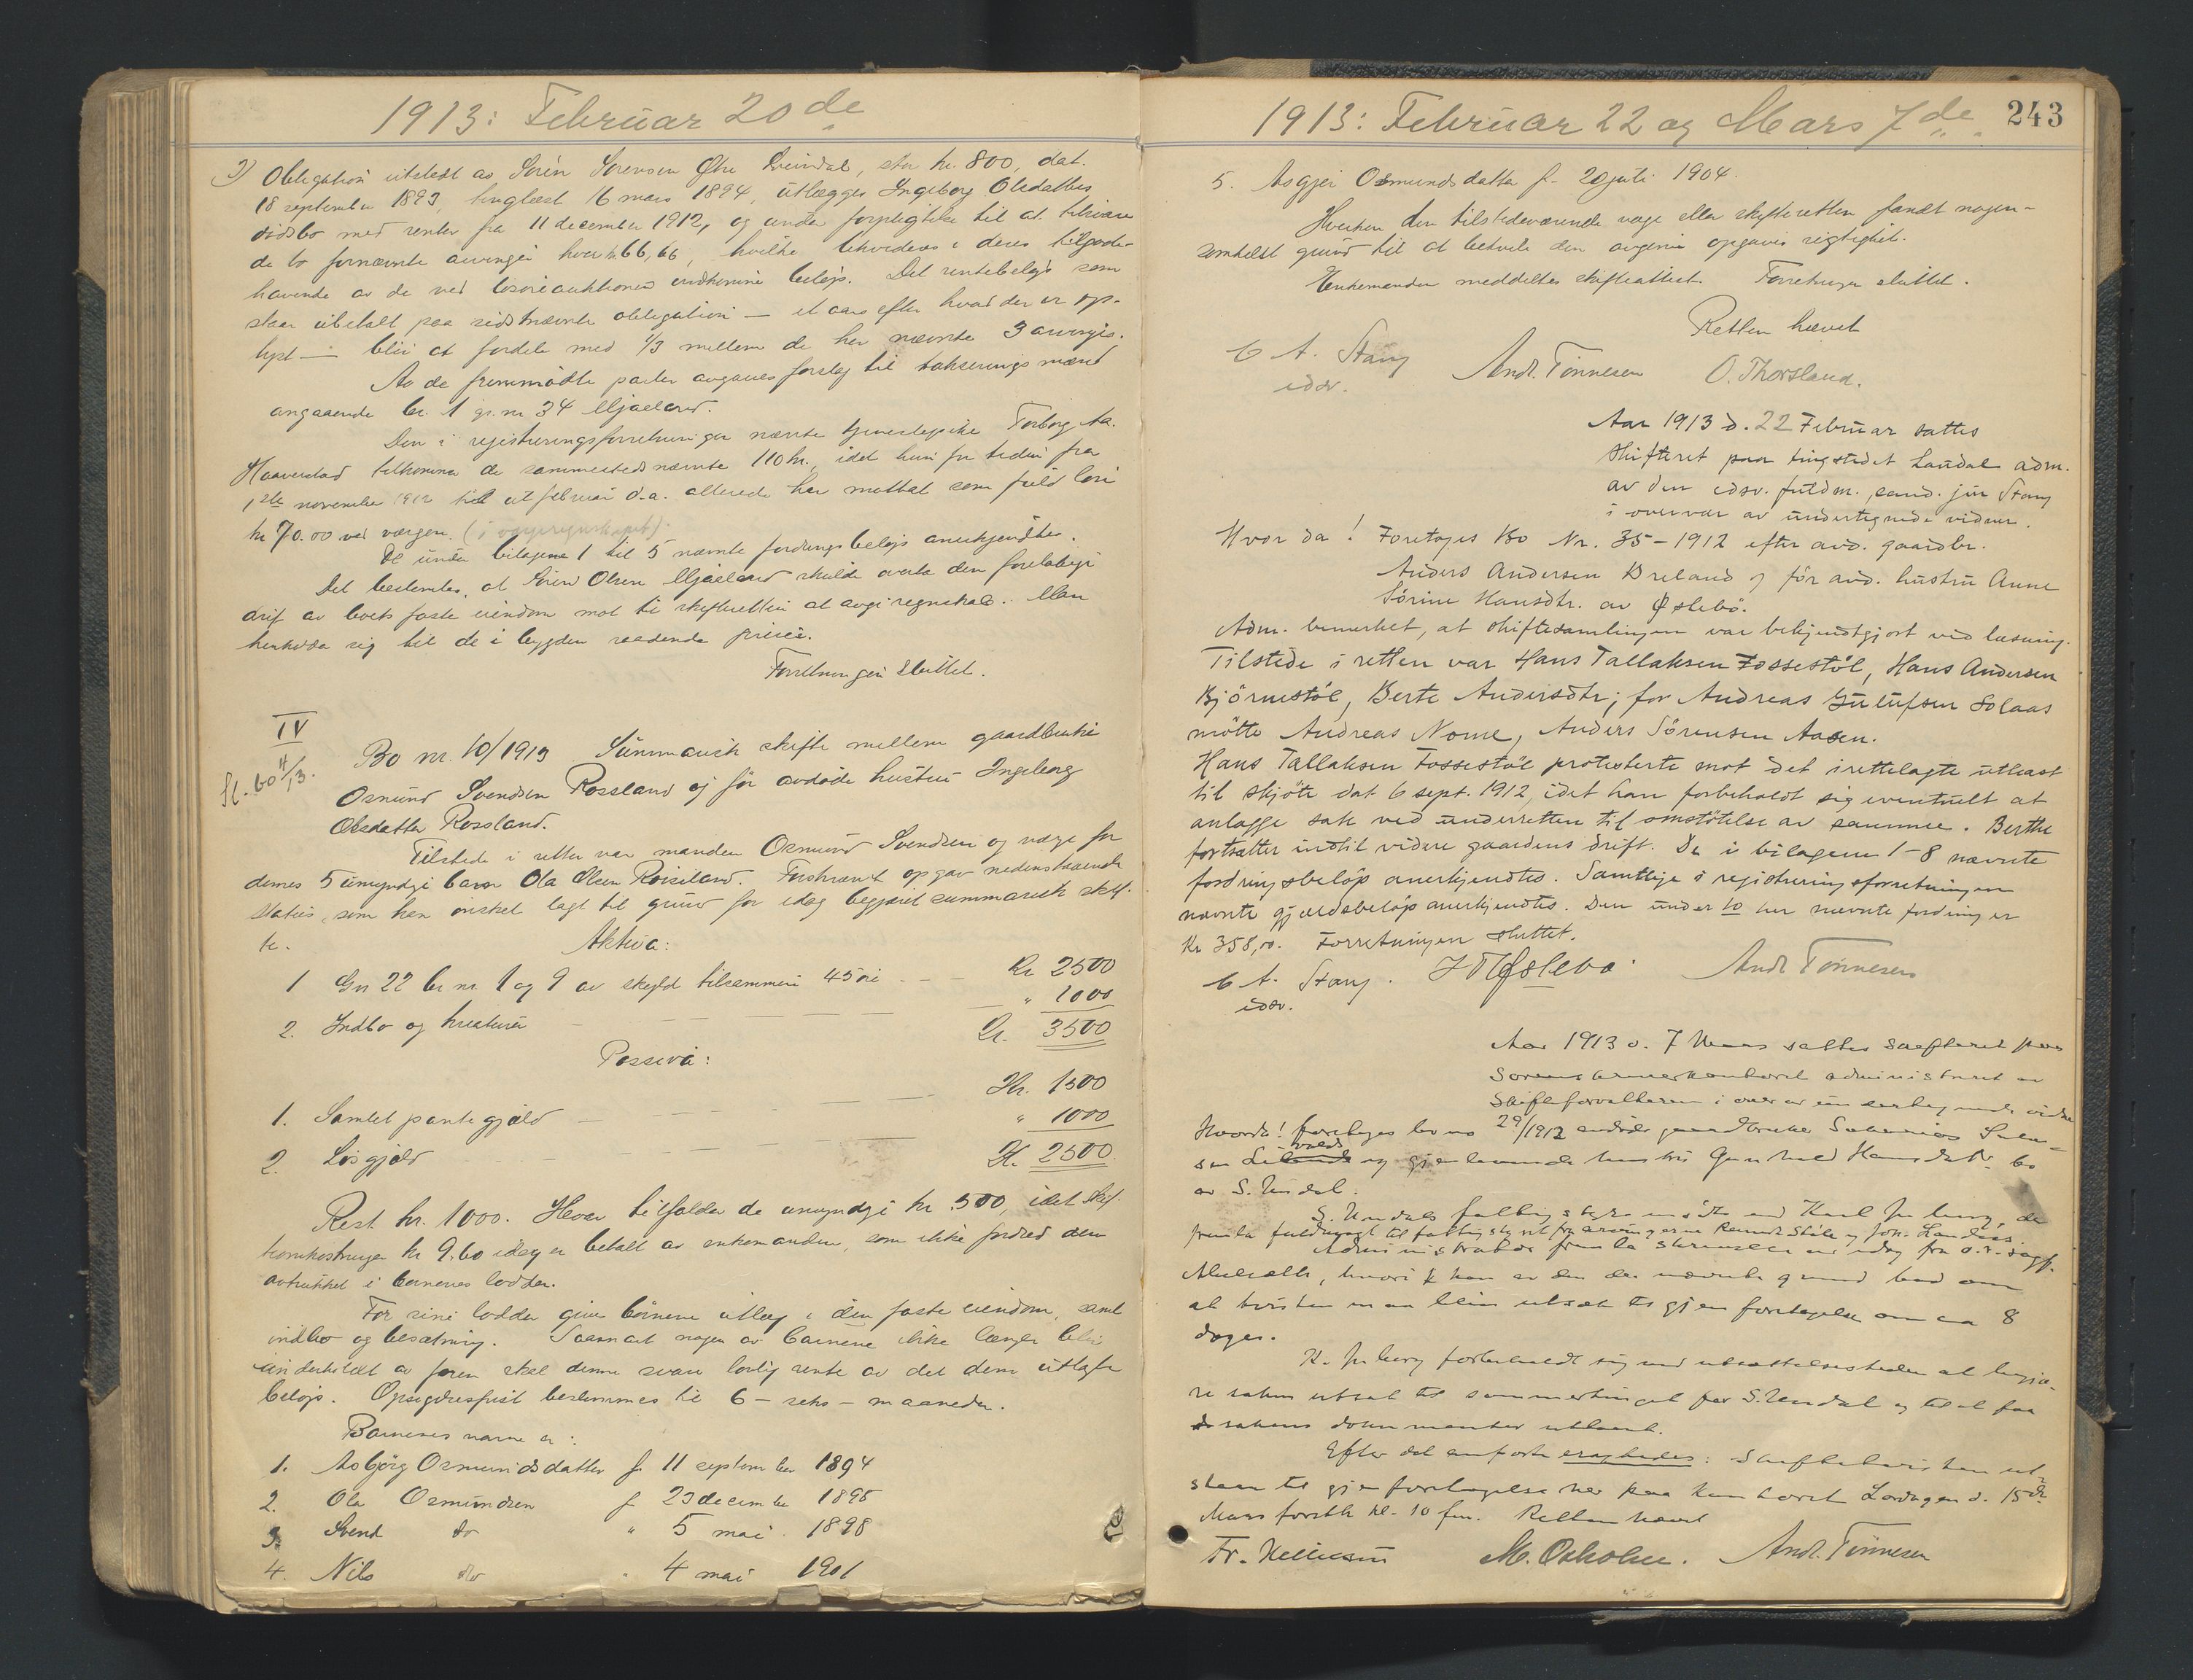 1913: Februar 20de
3) Obligation utstedt av Sørén Sørensen Øvre Lreindal, stor kr. 800, dat.
18 september 1893, tinglæst 16 mars 1894, utlægges Ingeborg Olsdatters
dødsbo med renter fra 11 december 1912, og under forpligtelse til at tilsvare
de to fornævnte arvinger hver kr. 66,66, hvilke likvideres i deres tilgode-
havende av de ved løsøreauktionen indkomne beløp. Det rentebeløp som
staar ubetalt paa sidstnævnte obligation — et aars efter hvad der er op-
lyst — blir at fordele med 1/3 mellem de her nævnte 3 arvinger.
Av de fremmødte parter avgaves forslag til takseringsmænd
angaaende br. 1 gr. nr 34 Mjaaland.
Den i registreringsforretningen nævnte tjenestepike Torborg Aa.
Haaverstad tilkommer de sammesteds nævnte 110 kr., idet hun for tiden fra
1ste november 1912 til ut februar d.a. allerede har mottat som fuld løn
kr 70.00 ved værgen. (i værgeregnskapet).
De under bilagene 1 til 5 nævnte fordringsbeløp anerkjendtes.
Det bestemtes, at Sørén Olsen Mjaaland skulde overta den foreløbige
drift av boets faste eiendom mot til skifteretten at avgi regnskab. Man
henholder sig til de i bygden raadende priser.
Forretningen sluttet.
IV
Bo nr. 10/1913 Summarisk skifte mellem gaardbruker
Sl. bo 4/13.
Osmund Svendsen Røssland og før avdøde hustru Ingeborg
Olsdatter Røssland.
Tilstede i retten var manden Osmund Svendsen og værge for
dennes 5 umyndige barn Ola Olsen Røiseland. Førstnævnt opgav nedenstaaende
status, som han ønsket lagt til grund for idag begjært summarisk skif-
te.
Aktiva:
1 Gn 22 br nr. 1 og 9 av skyld tilsammen 45 øre Kr 2500
2. Indbo og kreaturer " 1000
Kr. 3500
Passiva:
1. Samlet pantegjæld Kr. 1500
2. Løsgjæld " 1000
Kr. 2500
Rest kr. 1000. Herav tilfalder de umyndige kr. 500, idet skif-
teomkostninger kr 9,60 idag er betalt av enkemanden, som ikke fordred dem
avtrukket i børnenes lodder.
For sine lodder gives børnene utlæg i den faste eiendom, samt
indbo og besætning. Saasnart nogen av børnene ikke længer blir
underholdt av faren skal denne svare lovlig rente av det dem utlagte
beløp. Opsigelsesfrist bestemmes til 6 — seks — maaneder.
Barnenes navne er:
1. Asbjørg Osmundsdatter f. 11 september 1894
2. Ola Osmundsen f 23 december 1895
3. Svend do " 5 mai 1898
4. Nils do " 4 mai 1901
1913: Februar 22 og Mars 7de. 243
5. Asgjer Osmundsdatter f. 20 juli 1904.
Hverken den tilstedeværende værge eller skifteretten fandt nogen-
somhelst grund til at betvile den avgivne opgaves rigtighet.
Enkemanden meddeltes skifteattest. Forretningen sluttet.
Retten hævet
C A. Stang Andr. Tønnesen O. Thorsland.
edsv.
Aar 1913 d. 22 Februar sattes
skifteret paa tingstedet Laudal adm.
av den edsv. fuldm., cand. jur Stang
i overvær av undertegnede vidner.
Hvor da! Foretages Bo Nr. 35-1912 efter avd. gaardbr.
Anders Andersen Breland og før avd. hustru Anne
Sørine Hansdtr. av Øslebø.
Adm. bemerket, at skiftesamlingen var bekjendtgjort ved læsning.
Tilstede i retten var Hans Tallaksen Fossestøl, Hans Andersen
Bjørnestøl, Berte Andersdtr; for Andreas Gulufsen Solaas
møtte Andreas Nome, Anders Sørensen Aasen.
Hans Tallaksen Fossestøl protesterte mot det irettelagte utkast
til skjøte dat 6 sept. 1912, idet han forbeholdt sig eventuelt at
anlægge sak ved underretten til omstøtelse av samme. Berthe
fortsætter indtil videre gaardens drift. De i bilagene 1-8 nævnte
fordringsbeløp anerkjendtes. Samtlige i registreringsforretningen
nævnte gjældsbeløp anerkjendtes. Den under 10 her nævnte fordring er
Kr 358,00. Forretningen sluttet.
C A. Stang. J T Øslebø. Andr Tønnesen
edsv.
Aar 1913 d. 7 Mars sattes skifteret paa
Sorenskriverkontoret administreret av
Skifteforvalteren i overvær av undertegnede vidner
Hvorda! foretages bo no 29/1912 avdøde gaardbruker Salve-
sen og gjenlevende hustru Gunhild Hansdtr. bo
av S. Undal.
S. Undals fattigstyre møtte ved Karl Juberg, der
fremla fuldmagt til fattigstyret fra arvingerne
Administrator fremla skrivelse av idag fra o.r. sagf.
hvori han av den der nævnte grund bad om
at tvisten maa blive utsat til gjenforetagelse om ca 8
dager.
K. Juberg forbeholdt sig ved utsættelsestiden at begjæ-
re saken utsat til sommertinget for S. Undal og til at faa
sakens dokumenter utlaant.
Efter det anførte eragtedes: Skiftetvisten ut-
staar til gjenforetagelse her paa kontoret Lørdagen d. 15de
Mars førstk kl. 10 fm. Retten hævet
Fr. M. Oxholm. Andr. Tønnesen